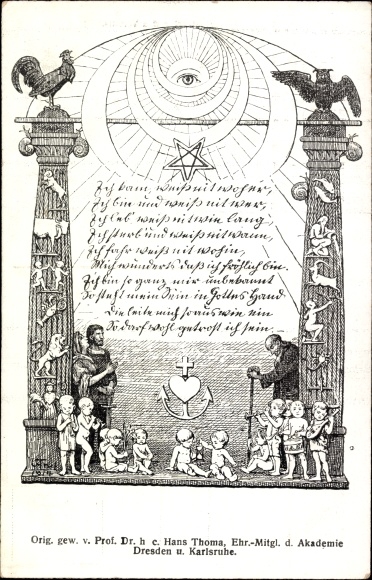 Ich kam, weiß nit woher,
Ich bin und weiß nit wer,
Ich leb weiß nit wie lang
Ich sterb und weiß nit wann,
Ich fahr weiß nit wohin,
Mich wunderts daß ich fröhlich bin.
Ich bin so ganz mir unbekannt
So steht mein Sein in Gottes Hand.
Die leite mich so aus wie ein
So darf wohl getrost ich sein.
Orig. gew. v. Prof. Dr. h c. Hans Thoma, Ehr.-Mitgl. d. Akademie
Dresden u. Karlsruhe.